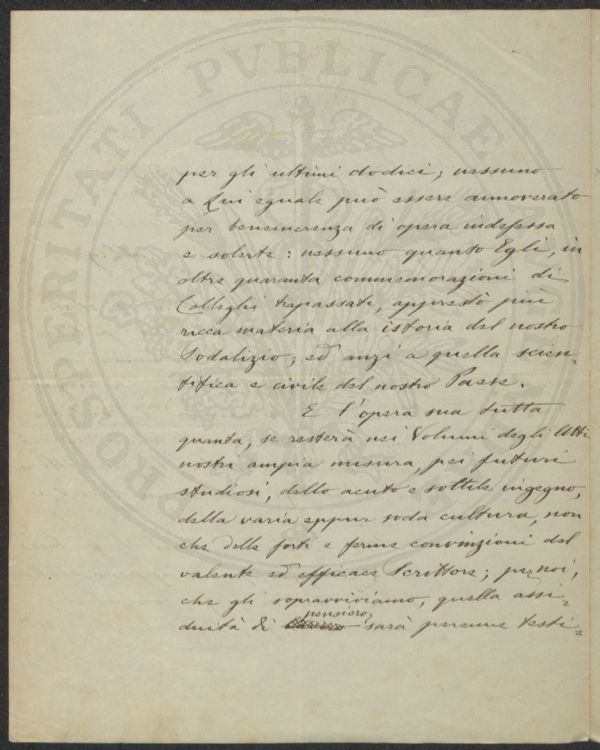 PROSPERITATI PVBLICAE
per gli ultimi dodici; nessuno
a Lui eguale può essere annoverato
per benemerenza di opera indefessa
e solerte: nessuno quanto Egli, in
oltre quaranta commemorazioni di
Colleghi trapassati, apprestò più
ricca materia alla istoria del nostro
Sodalizio, ed anzi a quella scien-
tifica e civile del nostro Paese.
E l'opera sua tutta
quanta, se resterà nei Volumi degli Atti
nostri ampia misura, pei futuri
studiosi, dello acuto e sottile ingegno,
della varia eppur soda cultura, non
che delle forti e ferme convinzioni del
valente ed efficace Scrittore; per noi,
che gli sopravviviamo, quella assi-
duità di pensiero sarà perenne testi-